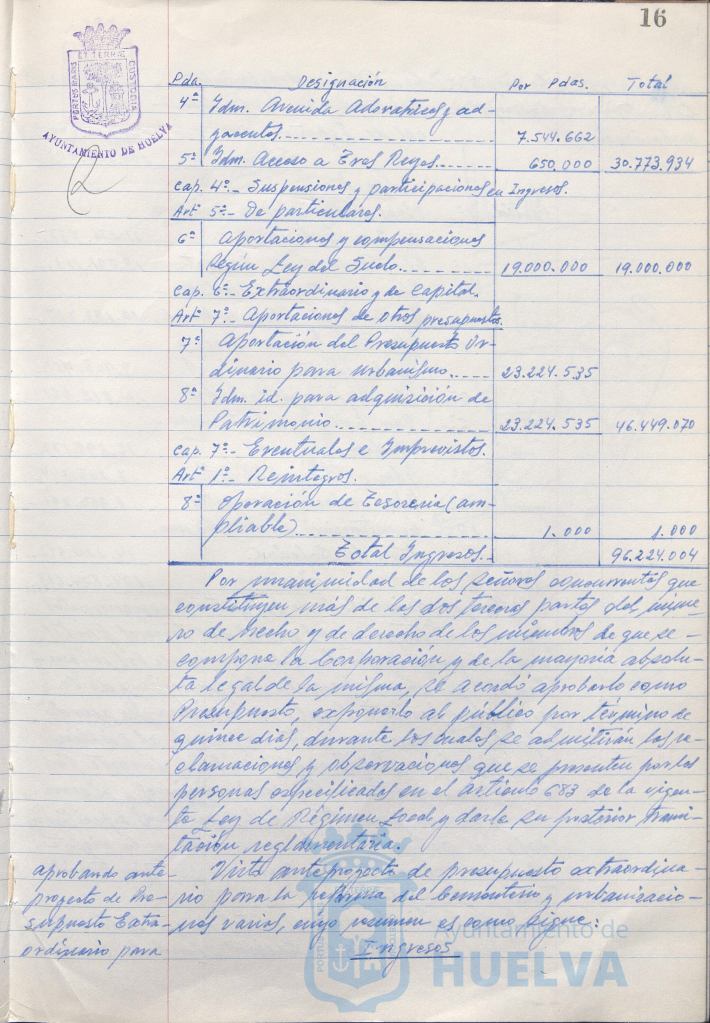 16
PORTUS MARIS ET TERRÆ CUSTODIA
AYUNTAMIENTO DE HUELVA
2
Pda. Designación Por Pdas. Total
4ª Idm. Avenida Adoratrices y ad-
yacentes 7.544.662
5ª Idm. Acceso a Tres Reyes 650.000 30.773.934
Cap. 4º.- Suspensiones y participaciones en Ingresos.
Artº 5º.- De particulares.
6ª Aportaciones y compensaciones
según Ley del Suelo 19.000.000 19.000.000
Cap. 6º.- Extraordinario y de Capital.
Artº 7º.- Aportaciones de otros presupuestos.
7ª Aportación del Presupuesto Or-
dinario para urbanismo 23.224.535
8ª Idm. id. para adquisición de
Patrimonio 23.224.535 46.449.070
Cap. 7º.- Eventuales e Imprevistos.
Artº 1º.- Reintegros.
8ª Operación de Tesorería (am-
pliable) 1.000 1.000
Total Ingresos.- 96.224.004
Por unanimidad de los señores concurrentes que
constituyen más de las dos terceras partes del núme-
ro de hecho y de derecho de los miembros de que se
compone la Corporación y de la mayoría absolu-
ta legal de la misma, se acordó aprobarlo como
Presupuesto, exponerlo al público por término de
quince días, durante los cuales se admitirán las re-
clamaciones y observaciones que se presenten por las
personas especificadas en el artículo 683 de la vigen-
te Ley de Régimen Local y darle su posterior trami-
tación reglamentaria.
aprobando ante-
proyecto de Pre-
supuesto Extra-
ordinario para
Visto anteproyecto de presupuesto extraordina-
rio para la reforma del Cementerio y urbanizacio-
nes varias, cuyo resumen es como sigue:
Ingresos
Ayuntamiento de
HUELVA